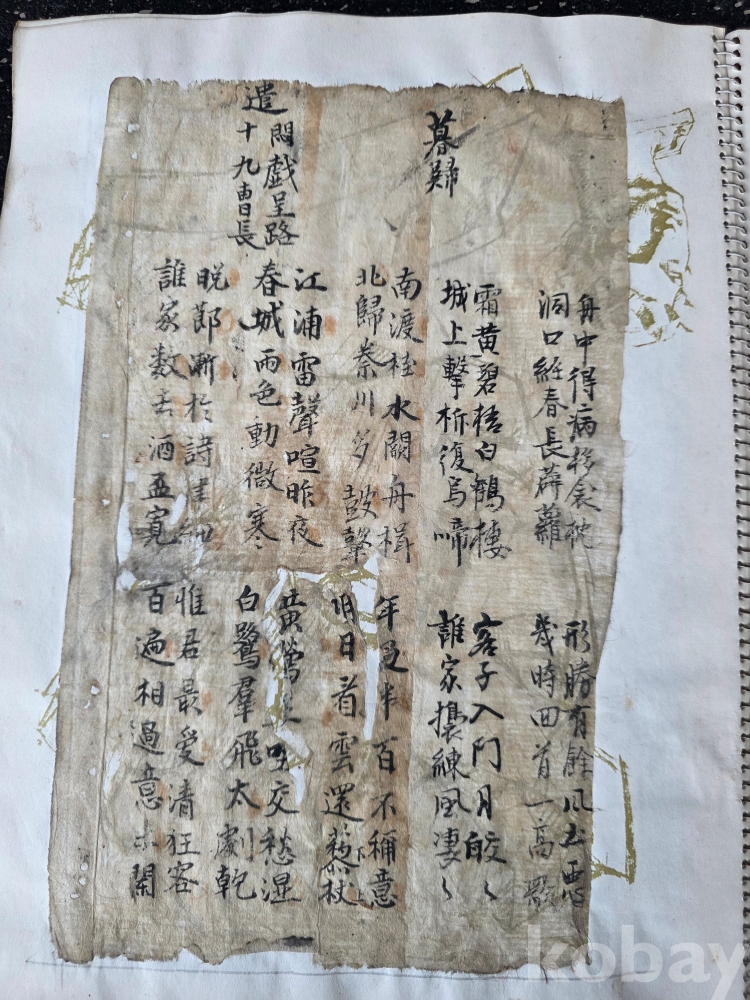 舟中得病移衾枕
洞口經春長薜蘿
形勝有餘風土惡
幾時回首一高歌
暮歸
霜黃碧梧白鶴樓
城上擊柝復烏啼
客子入門月皎〻
誰家擣練風凄〻
南渡桂水闕舟楫
北歸秦川多鼓鼙
年半百不稱意
明日看雲還藜杖
遣悶戱呈路
十九曹長
江浦雷聲喧昨夜
春城雨色動微寒
黃鶯坐交愁湿
白鷺羣飛太劇乾
晩節漸於詩律細
誰家數去酒盃寬
惟君最愛清狂客
百遍相過意未闌
kobay